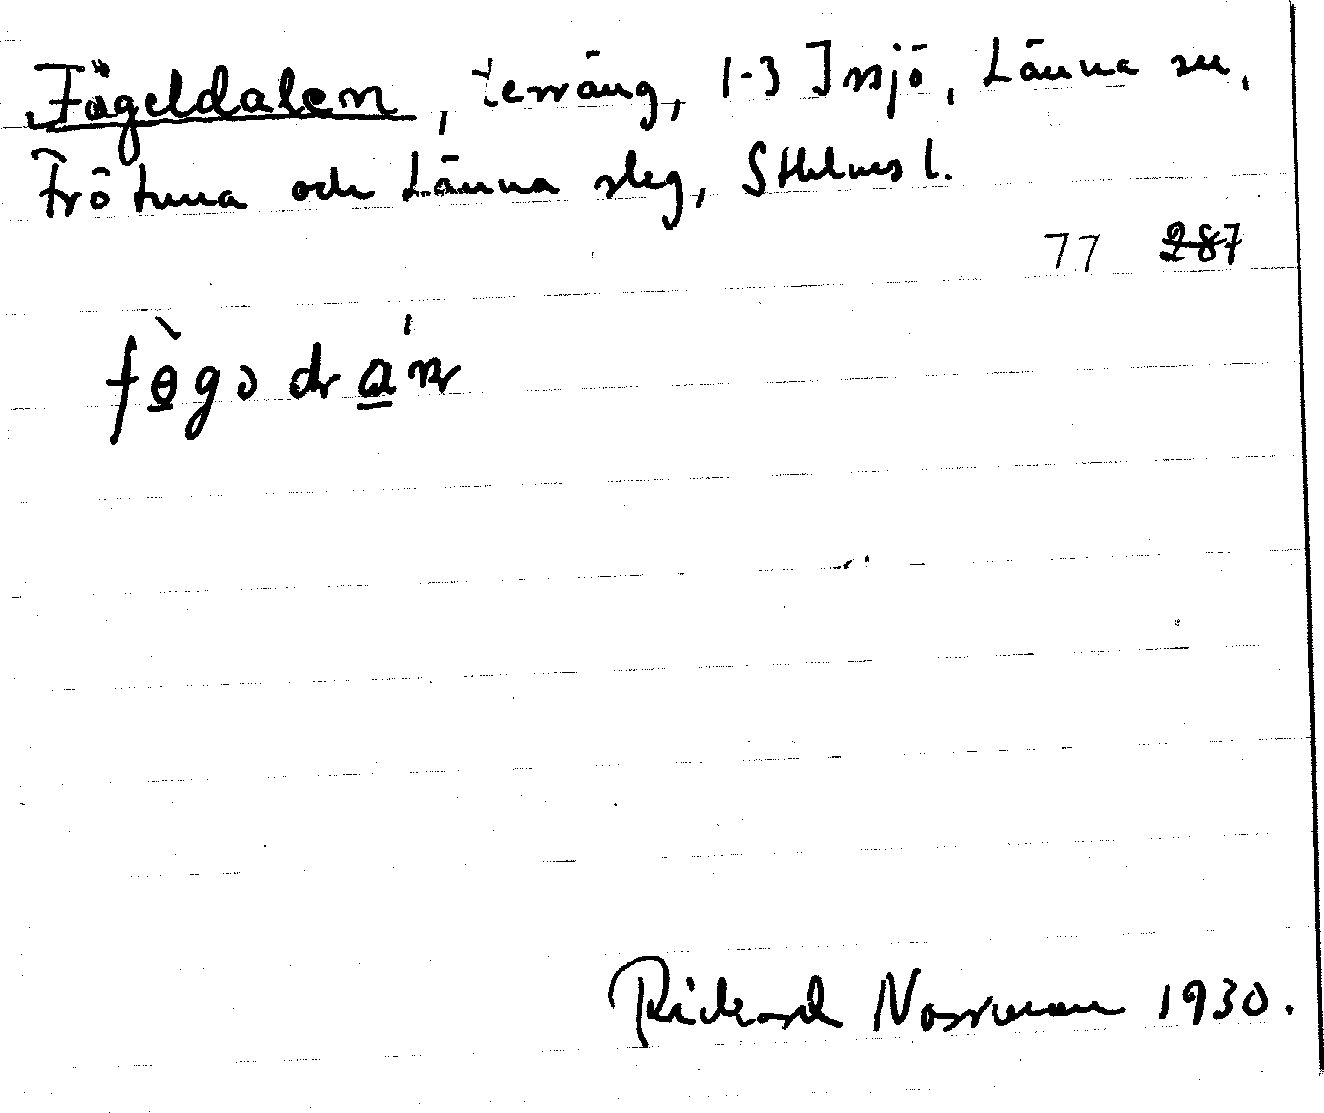 Fågeldalen, terräng, 1-3 Insjö, Länna sn,
Frötuna och Länna slg, Sthlms l.
77 287
Rickard Norrman 1930.